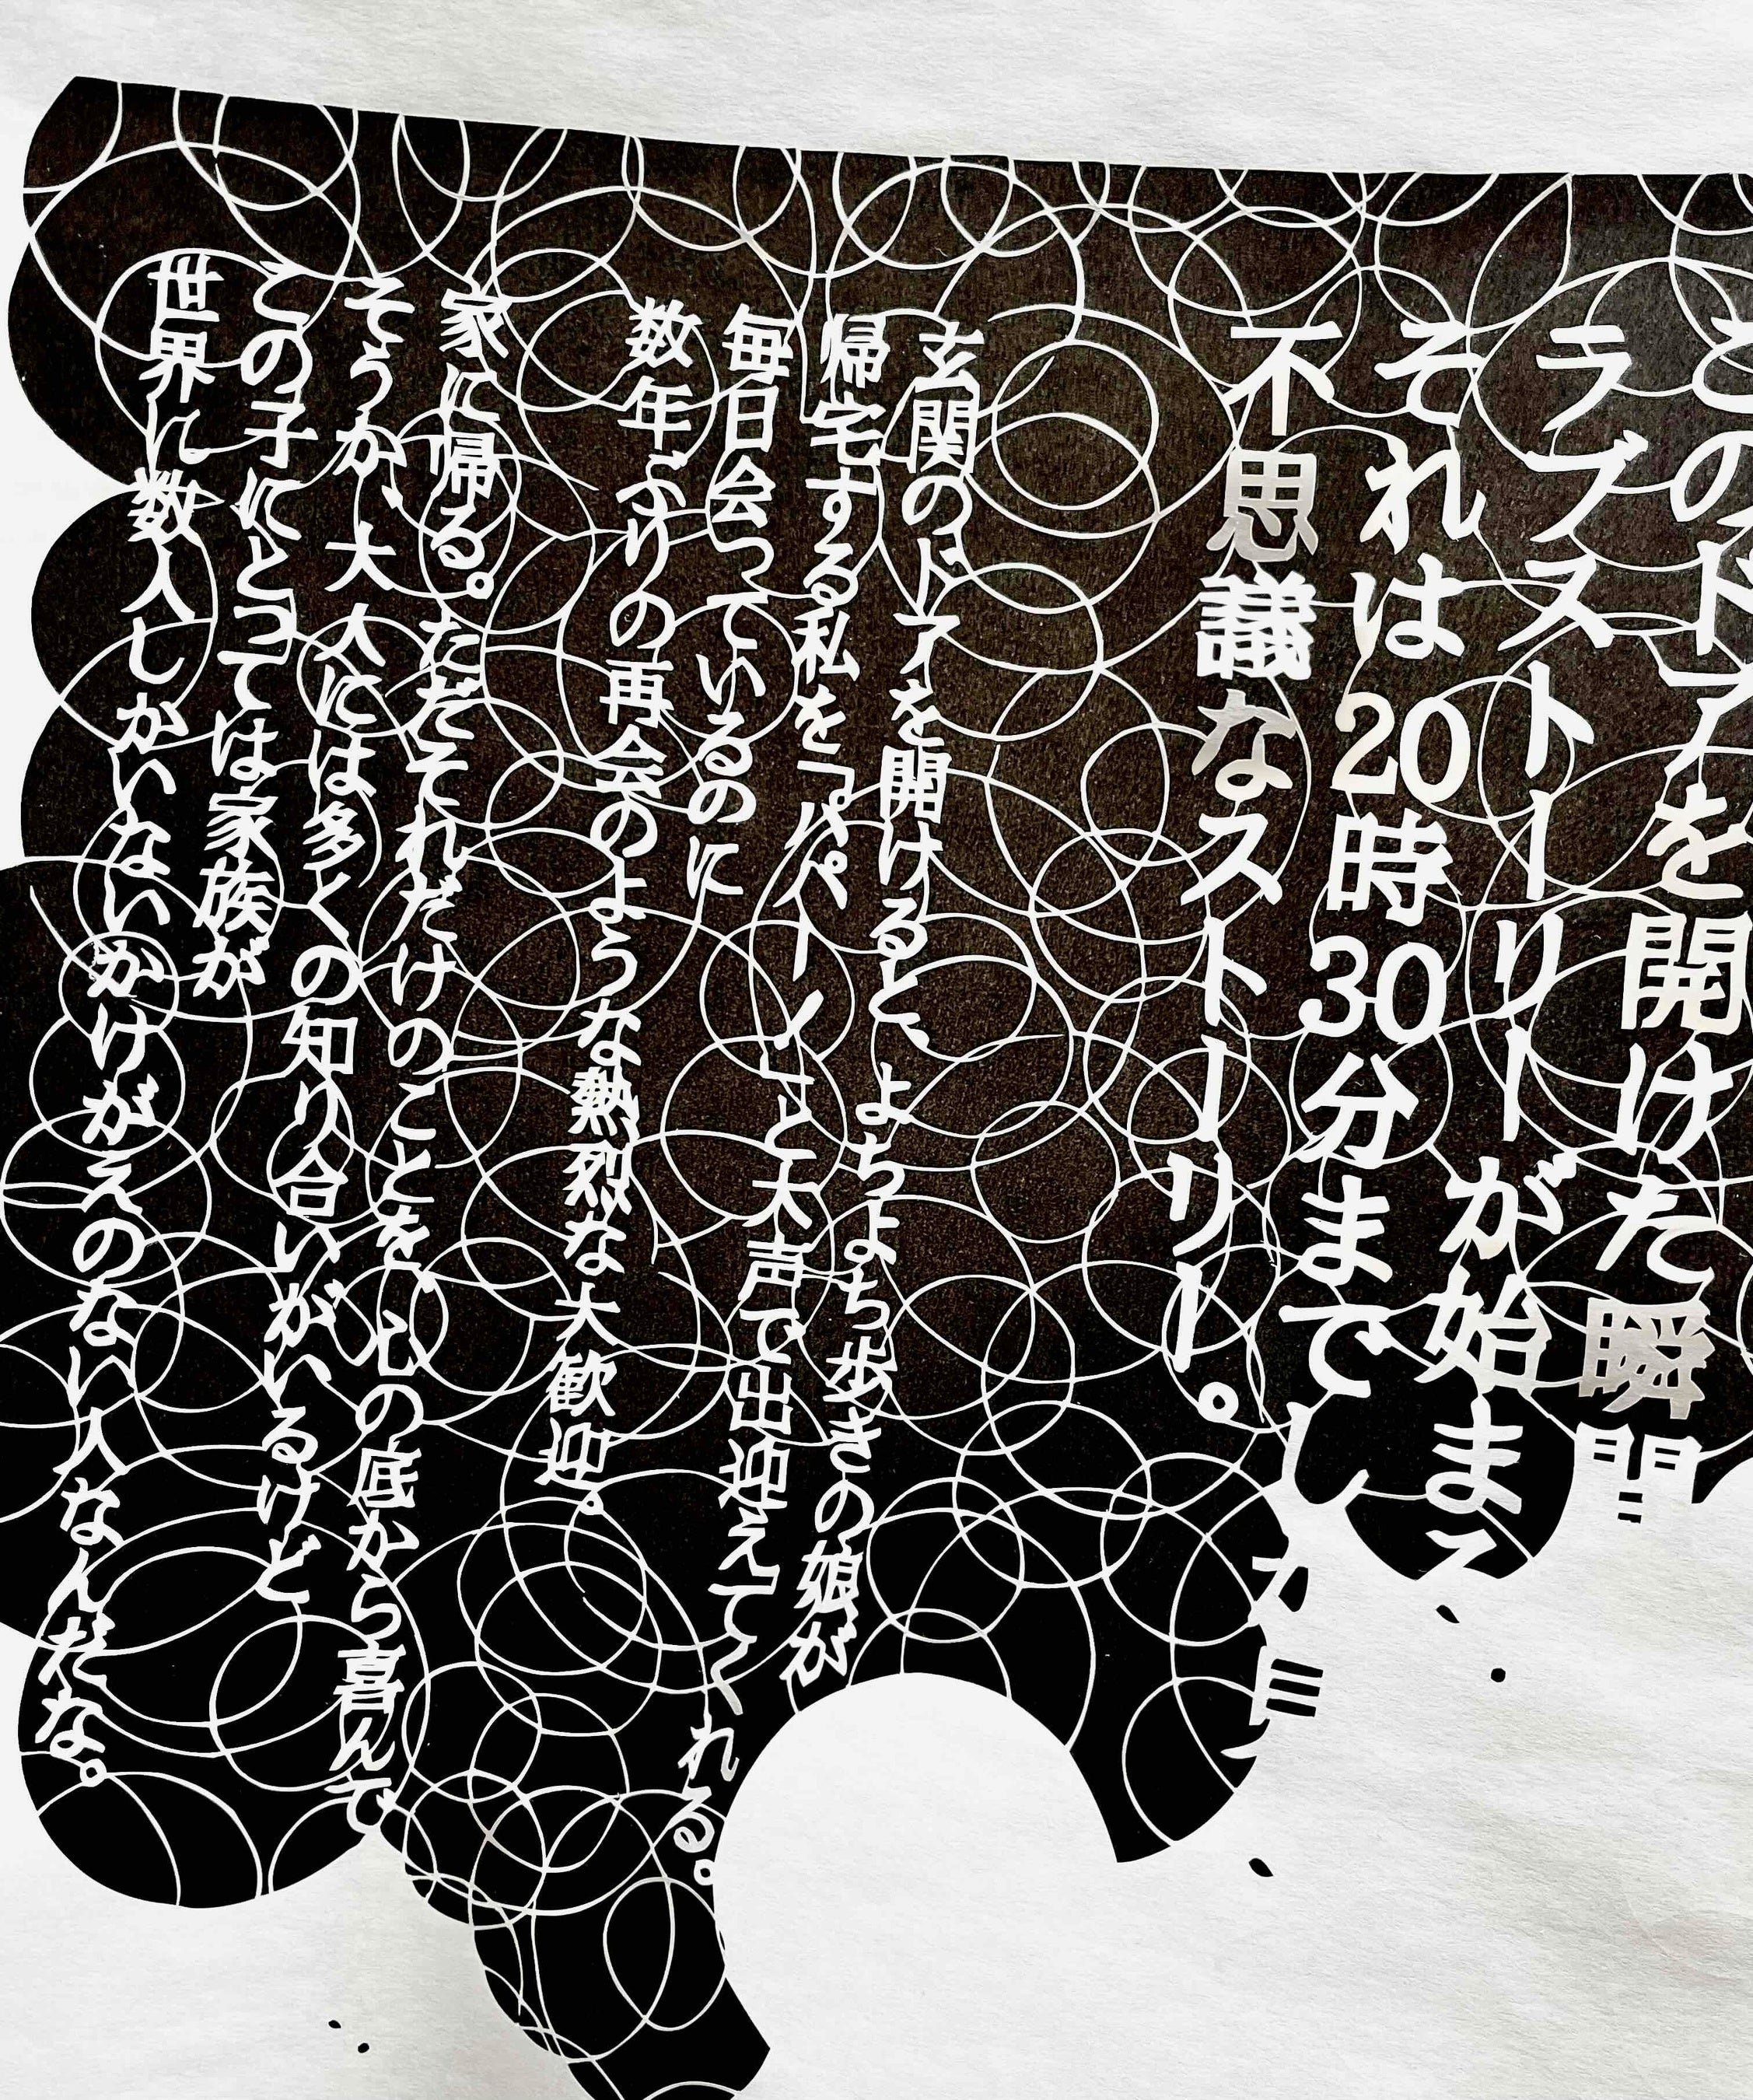 このドアを開けた瞬間
ラブストーリーが始まる
それは20時30分まで
不思議なストーリー。
玄関のドアを開けると、よちよち歩きの娘が
帰宅する私を「パパーイ」と大声で出迎えてくれる。
毎日会っているのに
数年ぶりの再会のような熱烈な大歓迎。
家に帰る。ただそれだけのことを、心の底から喜んで
そうか、大人には多くの知り合いがいるけど
この子にとっては家族が
世界に数人しかいないかけがえのない人なんだな。